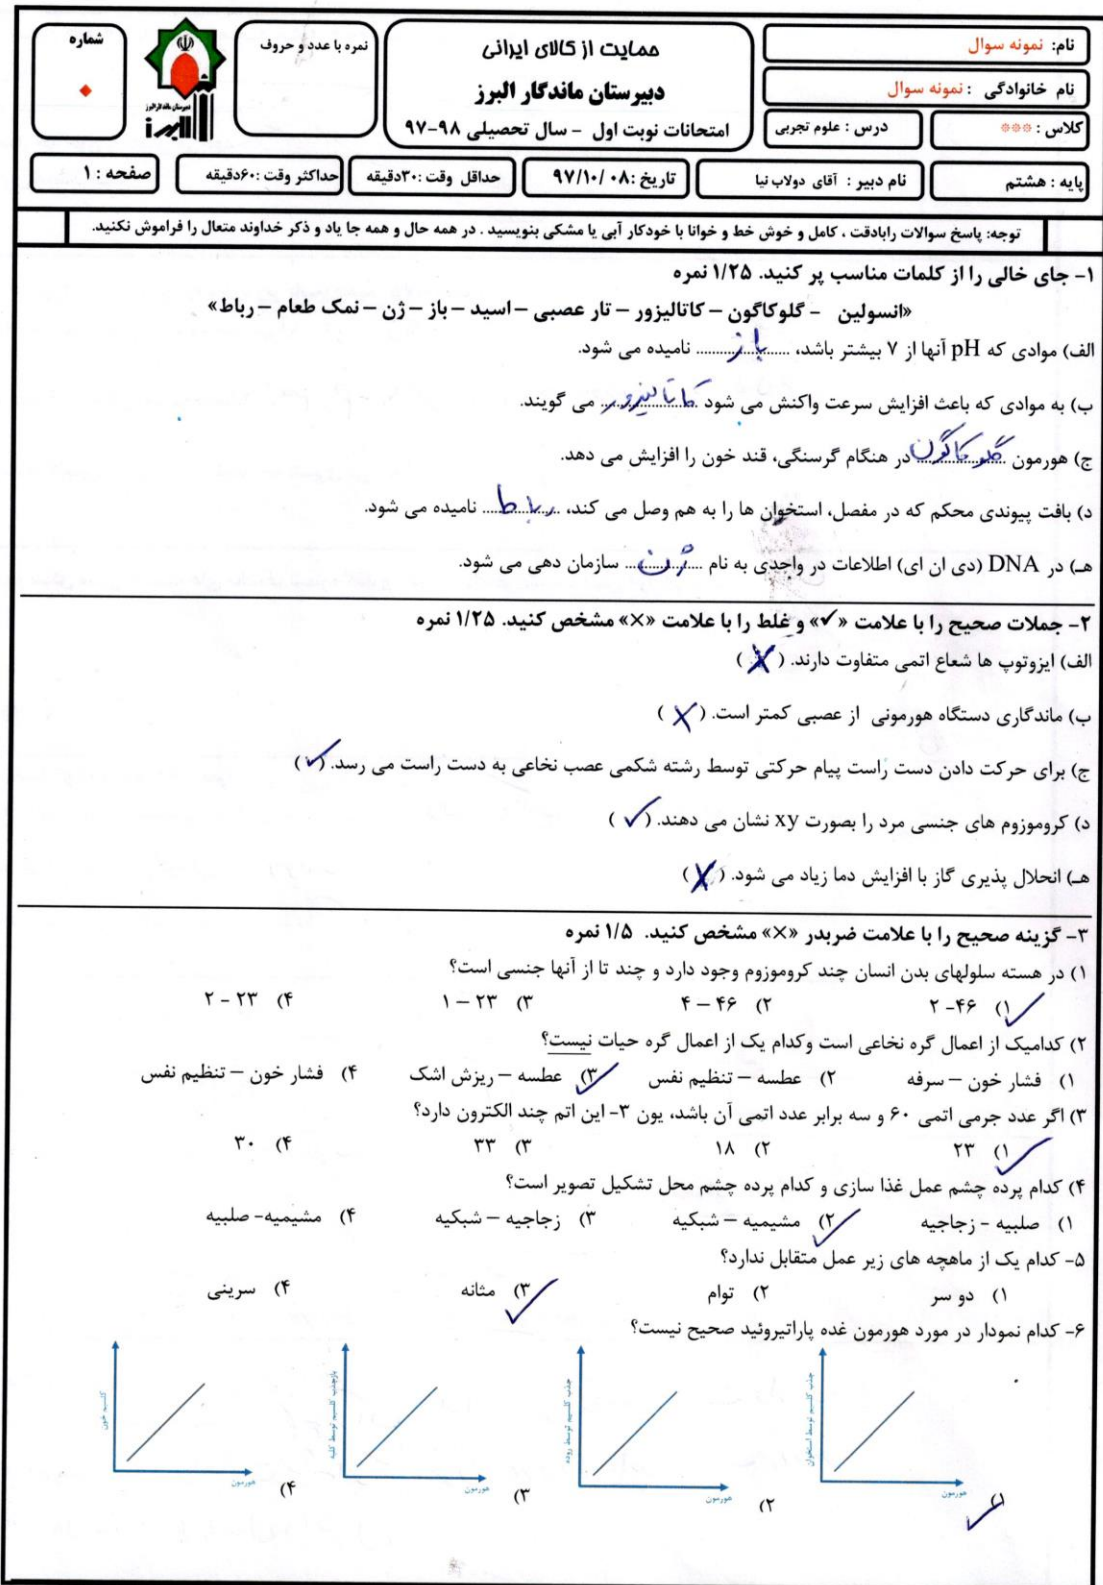 نام: نمونه سوال
نام خانوادگی : نمونه سوال
کلاس : ***
درس : علوم تجربی
حمایت از کالای ایرانی
دبیرستان ماندگار البرز
امتحانات نوبت اول - سال تحصیلی ۹۸-۹۷
نمره با عدد و حروف
دبیرستان ماندگار البرز
البرز
شماره
پایه : هشتم
نام دبیر : آقای دولاب نیا
تاریخ :۰۸ /۹۷/۱۰
حداقل وقت :۳۰دقیقه
حداکثر وقت :۶۰دقیقه
صفحه : ۱
توجه: پاسخ سوالات رابادقت ، کامل و خوش خط و خوانا با خودکار آبی یا مشکی بنویسید . در همه حال و همه جا یاد و ذکر خداوند متعال را فراموش نکنید.
۱- جای خالی را از کلمات مناسب پر کنید. ۱/۲۵ نمره
«انسولین - گلوکاگون – کاتالیزور – تار عصبی – اسید – باز – ژن – نمک طعام – رباط»
الف) موادی که pH آنها از ۷ بیشتر باشد، باز نامیده می شود.
ب) به موادی که باعث افزایش سرعت واکنش می شود کاتالیزور می گویند.
ج) هورمون گلوکاگون در هنگام گرسنگی، قند خون را افزایش می دهد.
د) بافت پیوندی محکم که در مفصل، استخوان ها را به هم وصل می کند، رباط نامیده می شود.
هـ) در DNA (دی ان ای) اطلاعات در واحدی به نام ژن سازمان دهی می شود.
۲- جملات صحیح را با علامت «✓» و غلط را با علامت «×» مشخص کنید. ۱/۲۵ نمره
الف) ایزوتوپ ها شعاع اتمی متفاوت دارند. (×)
ب) ماندگاری دستگاه هورمونی از عصبی کمتر است. (×)
ج) برای حرکت دادن دست راست پیام حرکتی توسط رشته شکمی عصب نخاعی به دست راست می رسد. (✓)
د) کروموزوم های جنسی مرد را بصورت xy نشان می دهند. (✓)
هـ) انحلال پذیری گاز با افزایش دما زیاد می شود. (×)
۳- گزینه صحیح را با علامت ضربدر «×» مشخص کنید. ۱/۵ نمره
۱) در هسته سلولهای بدن انسان چند کروموزوم وجود دارد و چند تا از آنها جنسی است؟
۱) ۴۶- ۲ ۲) ۴۶ – ۴ ۳) ۲۳ – ۱ ۴) ۲۳ - ۲
۲) کدامیک از اعمال گره نخاعی است وکدام یک از اعمال گره حیات نیست؟
۱) فشار خون – سرفه ۲) عطسه – تنظیم نفس ۳) عطسه – ریزش اشک ۴) فشار خون – تنظیم نفس
۳) اگر عدد جرمی اتمی ۶۰ و سه برابر عدد اتمی آن باشد، یون ۳- این اتم چند الکترون دارد؟
۱) ۲۳ ۲) ۱۸ ۳) ۳۳ ۴) ۳۰
۴) کدام پرده چشم عمل غذا سازی و کدام پرده چشم محل تشکیل تصویر است؟
۱) صلبیه - زجاجیه ۲) مشیمیه – شبکیه ۳) زجاجیه – شبکیه ۴) مشیمیه- صلبیه
۵- کدام یک از ماهچه های زیر عمل متقابل ندارد؟
۱) دو سر ۲) توام ۳) مثانه ۴) سرینی
۶- کدام نمودار در مورد هورمون غده پاراتیروئید صحیح نیست؟
جذب کلسیم توسط استخوان
هورمون
۱)
جذب کلسیم توسط روده
هورمون
۲)
بازجذب کلسیم توسط کلیه
هورمون
۳)
کلسیم خون
هورمون
۴)